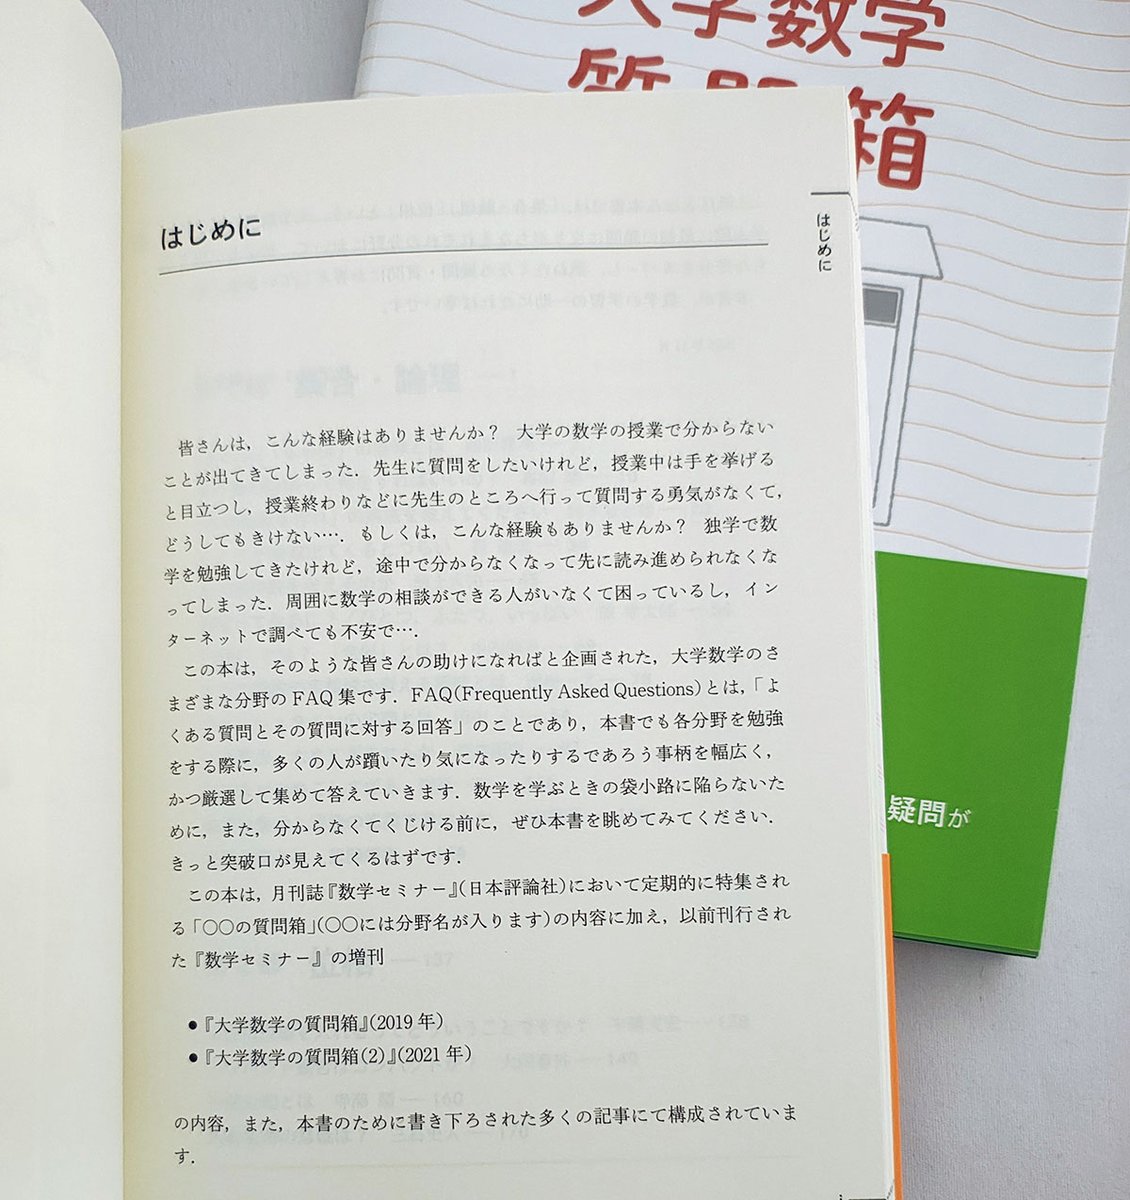 大学数学
質問箱
はじめに
はじめに
皆さんは，こんな経験はありませんか？　大学の数学の授業で分からない
ことが出てきてしまった．先生に質問をしたいけれど，授業中は手を挙げる
と目立つし，授業終わりなどに先生のところへ行って質問する勇気がなくて，
どうしてもきけない…．もしくは，こんな経験もありませんか？　独学で数
学を勉強してきたけれど，途中で分からなくなって先に読み進められなくな
ってしまった．周囲に数学の相談ができる人がいなくて困っているし，イン
ターネットで調べても不安で…．
この本は，そのような皆さんの助けになればと企画された，大学数学のさ
まざまな分野の FAQ 集です．FAQ(Frequently Asked Questions)とは，「よ
くある質問とその質問に対する回答」のことであり，本書でも各分野を勉強
をする際に，多くの人が躓いたり気になったりするであろう事柄を幅広く，
かつ厳選して集めて答えていきます．数学を学ぶときの袋小路に陥らないた
めに，また，分からなくてくじける前に，ぜひ本書を眺めてみてください．
きっと突破口が見えてくるはずです．
この本は，月刊誌『数学セミナー』(日本評論社)において定期的に特集され
る「○○の質問箱」(○○には分野名が入ります)の内容に加え，以前刊行され
た『数学セミナー』の増刊
●『大学数学の質問箱』(2019 年)
●『大学数学の質問箱(2)』(2021 年)
の内容，また，本書のために書き下ろされた多くの記事にて構成されていま
す．
疑問が